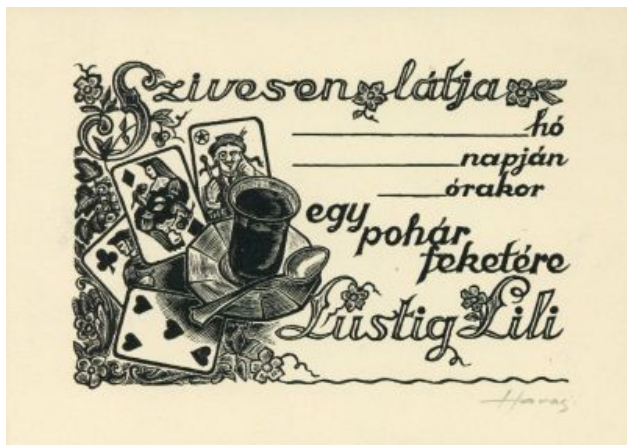 Szivesen látja
hó
napján
órakor
egy
pohár
feketére
Lustig Lili